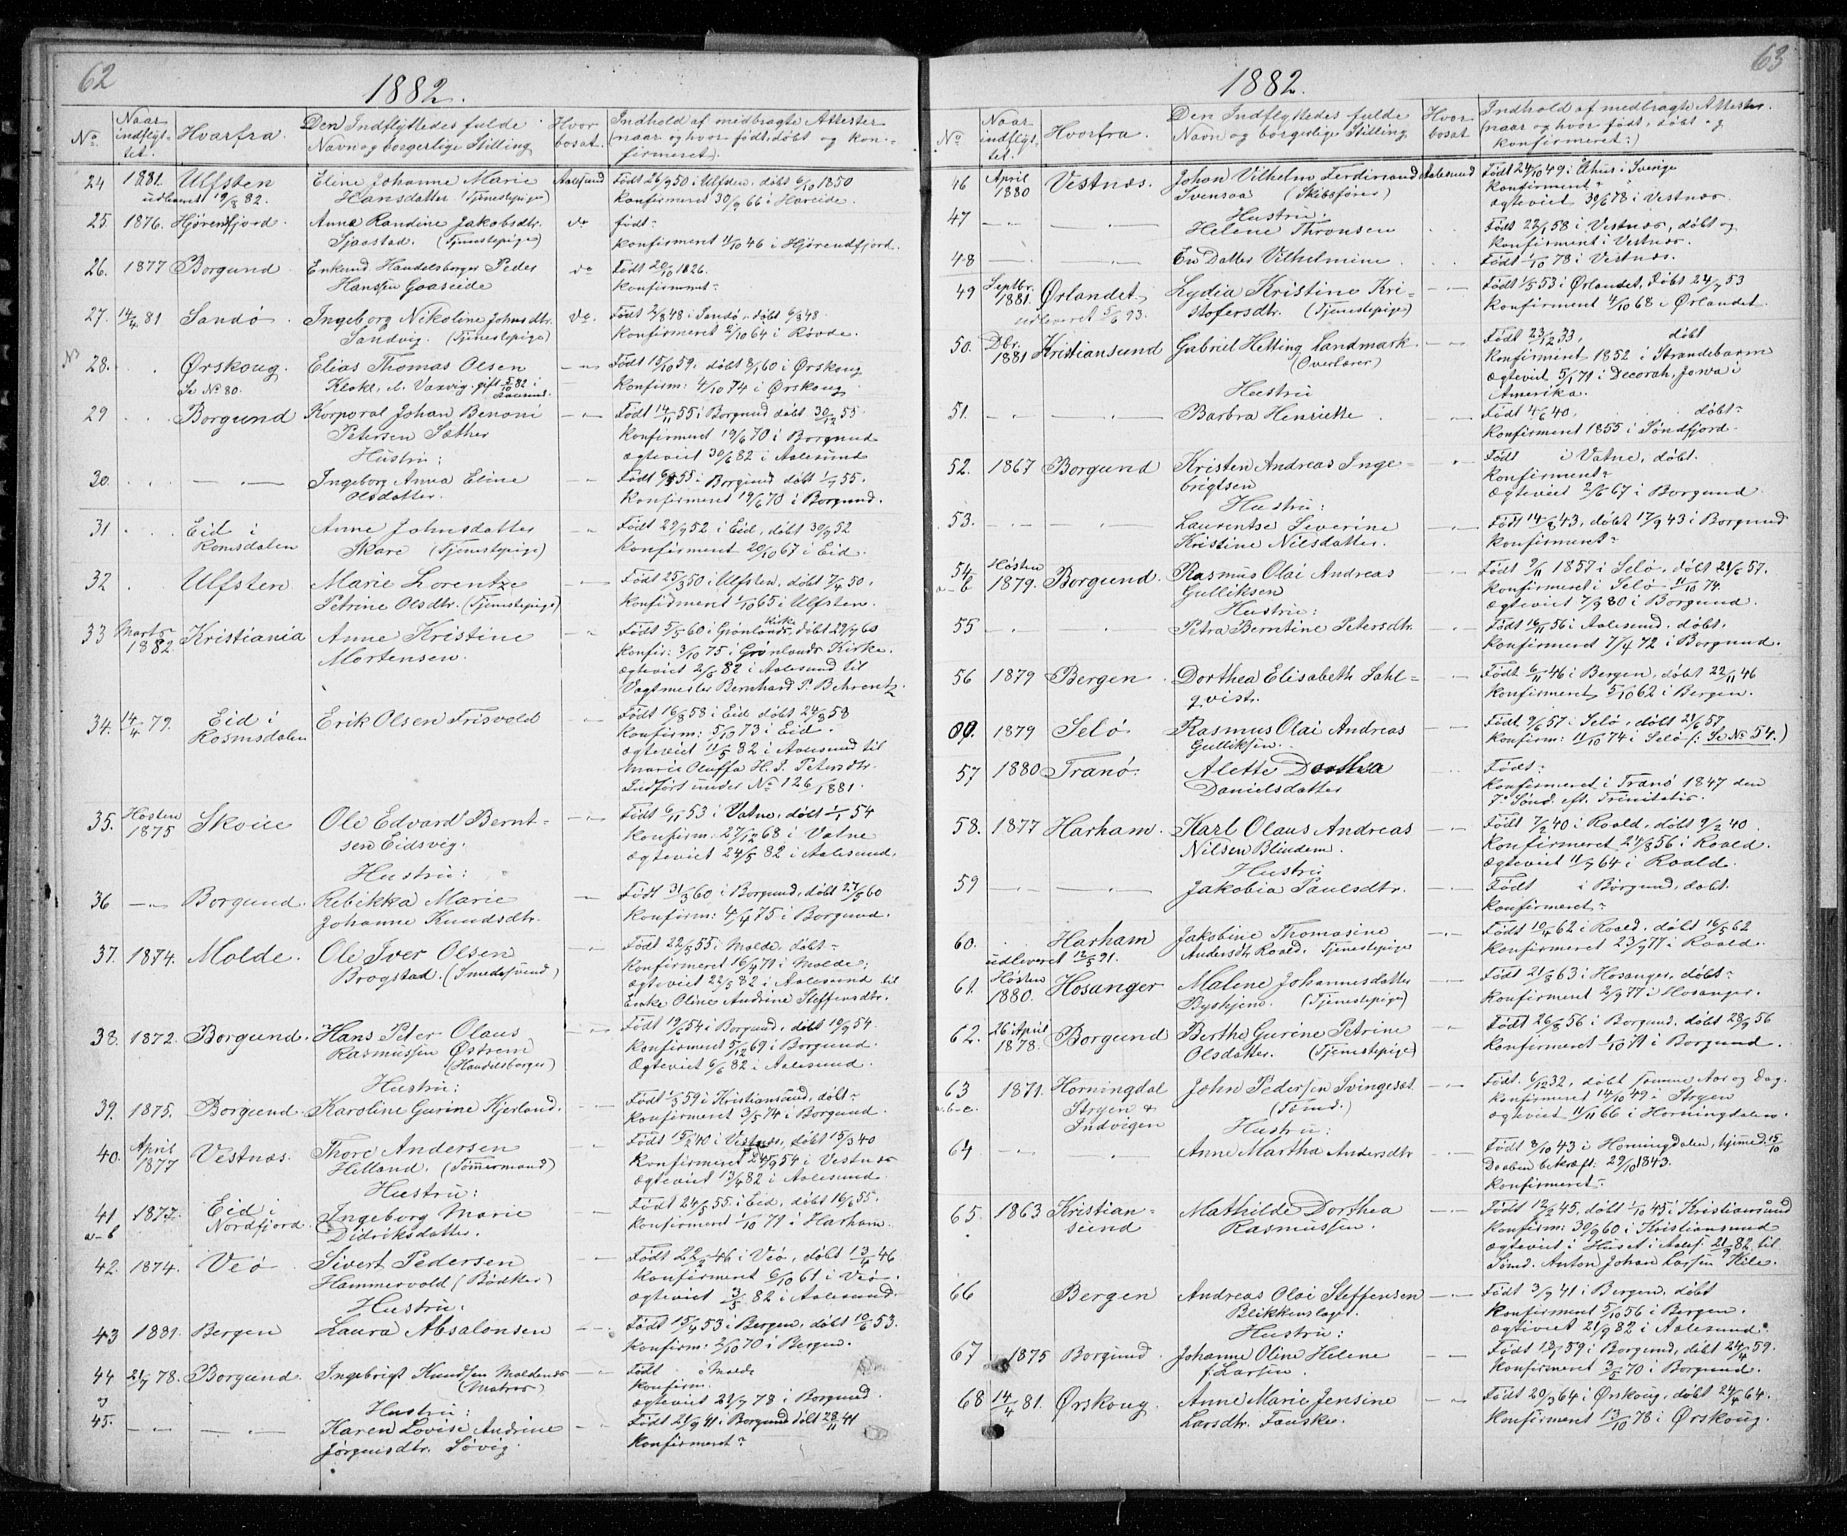 62
1882.
No. Naar indflyttet. Hvorfra. Den Indflyttedes fulde Navn og borgerlige Stilling Hvor bosat. Indhold af medbragte Attester (naar og hvor født, døbt og konfirmeret).
24 1881. Ulfsten Eline Johanne Marie Aalesund Født 26/9 50 i Ulfsten, døbt 6/10 1850
udleveret 19/8 82. Hansdatter (Tjenestepige) konfirmeret 30/9 66 i Hareide.
25. 1876. Hjørenfjord. Anne Randine Jakobsdtr. do født-
Sjaastad. (Tjenestepige) konfirmeret 11/10 46 i Hjørendfjord.
26. 1877 Borgund Enkemd Handelsborger Peder do Født 20/10 1826.
Hanssen Gaaseide konfirmeret-
27. 14/4 81 Sandø Ingeborg Nikoline Johnsdtr. do. Født 2/8 48 i Sandø, døbt 6/8 48.
Sandvig. (Tjenestepige) konfirmeret 2/10 64 i Røvde.
28. Ørskoug. Elias Thomas Olsen Født 15/10 59, døbt 8/1 60 i Ørskoug
Se No 80. konfirm: 4/10 74 i Ørskoug
29 Borgund Korporal Johan Benoni Født 14/11 55 i Borgund døbt 30/12 55.
Petersen Sæther konfirmeret 19/6 70 i Borgund
Hustru: ægteviet 30/6 82 i Aalesund
30. Ingeborg Anna Eline Født 6/3 55 i Borgund døbt 1/4 55.
Olsdatter. konfirmeret 19/6 70 i Borgund.
31 Eid i Anne Johnsdatter Født 29/9 52 i Eid, døbt 30/9 52
Romsdalen Skare (Tjenestepige) konfirmeret 20/10 67 i Eid.
32 Ulfsten Marie Lorentze Født 25/3 50 i Ulfsten, døbt 7/4 50.
Petrine Olsdtr. (Tjenestepige) konfirmeret 1/10 65 i Ulfsten.
33 Marts 1882 Kristiania Anne Kristine Født 5/5 60 i Grønlands Kirke, døbt 22/7 60
Mortensen. konfir: 3/10 75 i Grønlands Kirke.
ægteviet 2/6 82 i Aalesund til
Vagtmester Bernhard P. Behrentz.
34. 14/4 79. Eid i Erik Olsen Frisvold Født 16/8 58 i Eid døbt 24/8 58
Romsdalen konfirm: 5/10 73 i Eid.
ægteviet 11/5 82 i Aalesund til
Marie Oluffa H. J. Petersdtr.
Indført under No 126/1881.
35. Høsten 1875 Skoue Ole Edvard Bernt- Født 6/11 53 i Vatne, døbt 1/1 54
sen Eidsvig. konfirm: 27/12 68 i Vatne
Hustru: ægteviet 24/5 82 i Aalesund.
36 Borgund. Rebikka Marie Født 31/3 60 i Borgund, døbt 27/5 60
Johanne Knudsdtr. konfirm: 4/4 75 i Borgund.
37. 1874. Molde. Ole Iver Olsen Født 22/5 55 i Molde, døbt-
Brogstad. (Smedesvend) konfirmeret 16/4 71 i Molde;
ægteviet 22/5 82 i Aalesund til
Enke Oline Andrine Steffensdtr.
38. 1872. Borgund. Hans Peter Olaus Født 19/6 54 i Borgund, døbt 10/9 54.
Rasmussen Østrem konfirmeret 5/12 69 i Borgund.
(Handelsborger) Ægteviet 6/6 82 i Aalesund.
Hustru:
39. 1875. Borgund. Karoline Gurine Kjerland. Født 1/3 59 i Kristiansund, døbt-
konfirmeret 3/5 74 i Borgund.
40. April 1877 Vestnæs. Thore Andersen Født 15/2 40 i Vestnæs, døbt 15/3 40
Helland. (Tømmermand) konfirmeret 24/9 54 i Vestnæs
Hustru: ægteviet 13/6 82 i Aalesund.
41 a-b 1877. Eid i Ingeborg Marie Født 24/5 55 i Eid, døbt 16/6 55.
Nordfjord. Didriksdatter. konfirmeret 1/10 71 i Harham.
42. 1874. Veø Sivert Pedersen Født 22/2 46 i Veø, døbt 13/4 46
Hammervold (Bødker) konfirmeret 6/10 61 i Veø.
Hustru: ægteviet 3/5 82 i Aalesund.
43 1881. Bergen Laura Absalonsen Født 15/4 53 i Bergen, døbt 10/6 53.
konfirm: 2/10 70 i Bergen.
44 21/7 78. Borgund. Ingebrigt Knudsen Moldenæs Født i Molde
(Matros) konfirm:
Hustru: ægteviet 22/9 78 i Borgund
45. Karen Lovise Andrine Født 21/9 41 i Borgund døbt 28/11 41
Jørgensdtr. Søvig. konfirmeret-
63
1882.
No Naar indflyttet. Hvorfra. Den Indflyttedes fulde Navn og borgerlige Stilling. Hvor bosat. Indhold af medbragte Attester. (naar og hvor født, døbt og konfirmeret:)
46 April 1880 Vestnæs. Johan Vilhelm Ferdinand Aalesund Født 24/10 49 i Åhus i Sverige
Svensson (Skibsfører) konfirmeret-
Hustru: ægteviet 30/6 78 i Vestnæs.
47 Helene Thronsen Født 22/1 58 i Vestnæs, døbt og
konfirmeret i Vestnæs.
48 En Datter Vilhelmine Født 1/10 78 i Vestnæs.
49 Septbr. 1881. Ørlandet Lydia Kristine Kri- Født 1/5 53 i Ørlandet, døbt 24/7 53
udleveret 5/6 93. stofersdtr. (Tjenestepige) konfirmeret 4/10 68 i Ørlandet.
50. Dbr. 1881 Kristiansund Gabriel Hetting Landmark Født 23/12 33, døbt
(Overlærer) konfirmeret 1852 i Strandebarm
Hustru ægteviet 5/1 71 i Decorah, Jowa i
Amerika.
51. Barbra Henriette Født 4/6 40, døbt-
konfirmeret 1855 i Søndfjord.
52. 1867 Borgund Kristen Andreas Inge- Født i Vatne, døbt.
brigtsen konfirmeret-
Hustru: ægteviet 2/6 67 i Borgund.
53. Laurentse Severine Født 14/8 43, døbt 17/9 43 i Borgund.
Kristine Nilsdatter. konfirmeret-
54 a-b Høsten 1879. Borgund. Rasmus Olai Andreas Født 9/11 1857 i Selø, døbt 21/6 57.
Gulliksen konfirmeret i Selø 11/10 74.
Hustru: ægteviet 7/9 80 i Borgund.
55 Petra Berntine Petersdtr. Født 16/11 56 i Aalesund, døbt.
konfirmeret 7/4 72 i Borgund.
56 1879 Bergen Dorthea Elisabeth Sahl- Født 6/11 46 i Bergen, døbt 22/11 46
qvist. konfirmeret 5/10 62 i Bergen.
1879 Selø Rasmus Olai Andreas Født 9/6 57. Selø, døbt 21/6 57
Gulliksen. konfirm: 11/10 74 i Selø (: Se No 54.)
57 1880 Tranø. Alette Dorthea Født-
Danielsdatter konfirmeret i Tranø 1847 den
7de Sønd. eft. Trinitatis.
58. 1877 Harham. Karl Olaus Andreas Født 7/2 40 i Roald, døbt 9/2 40.
Nilsen Blindem. konfirmeret 24/8 56 i Roald.
Hustru ægteviet 11/9 64 i Roald.
59 Jakobia Paulsdtr. Født i Borgund, døbt.
konfirmeret-
60. Harham Jakobine Thomasine Født 10/4 62 i Roald, døbt 16/5 62
udleveret 12/5 91. Andersdtr Roald. Tjenestepige konfirmeret 23/9 77 i Roald.
61. Høsten 1880. Hosanger Malene Johannesdatter Født 21/8 63 i Hosanger, døbt-
Byshjem. (Tjenestepige) konfirmeret 2/9 77 i Hosanger.
62. 26 April 1878. Borgund Berthe Gurine Petrine Født 26/8 56 i Borgund, døbt 28/9 56
Olsdatter. (Tjenestepige) konfirmeret 1/10 71 i Borgund.
63 a-b-c. 1871. Horningdal John Pedersen Svingeset Født. 6/12 32, døbt samme Aar og Dag.
Stryen & (Tømd.) konfirmeret 14/10 49 i Stryen
Indvigen Hustru: ægteviet 11/11 66 i Horningdalen.
64 Anne Martha Andersdtr Født 8/10 43 i Horningdalen, hjemmed. 15/10
Daaben bekræft: 29/10 1843.
konfirmeret-
65. 1863 Kristian- Mathilde Dorthea Født 12/2 45, døbt 1/10 45 i Kristiansund
sund Rasmussen. konfirm: 30/9 60 i Kristiansund
ægteviet i Huset i Aales: 21/9 82 til
Sømd. Anton Johan Larsen Hile.
66 Bergen Andreas Olai Steffensen Født 3/9 41 i Bergen, døbt
Blikkenslager. konfirmeret 5/10 56 i Bergen.
Hustru: ægteviet 21/9 82 i Aalesund.
67 1875 Borgund. Johanne Oline Helene Født 12/7 59 i Borgund, døbt 24/4 59.
f. Larsen. konfirmeret 3/5 70 i Borgund.
68 14/4 81. Ørskoug. Anne Marie Jensine Født 20/3 64 i Ørskoug, døbt 24/4 64.
Larsdtr. Fauske. konfirmeret 13/10 78 i Ørskoug.